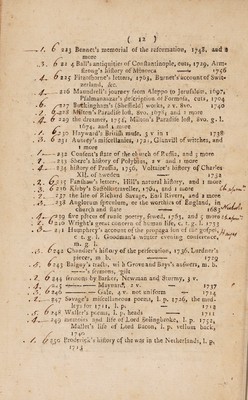 ( 12 )
1. 6 223 Bennet's memorial of the reformation, 1748, and 2
more
3. 6 224 Ball's antiquities of Constantinople, cuts, 1729, Arm-
strong's history of Minorca — 1756
4. 6 225 Fitzosborne's letters, 1763, Burnet's account of Swit-
zerland, &c.
4. 216 Maundrell's journey from Aleppo to Jerusalem, 1697,
Psalmanazar's description of Formosa, cuts, 1704
6. 227 Buckingham's (Sheffield) works, 2 v. 8vo. 1740
1. 6 228 Milton's Paradise lost, 8vo, 1678, and 2 more
4. 6 229 the dreamer, 1754, Milton's Paradise lost, 8vo. g. l.
1674, and 2 more
1. 6 230 Hayward's British muse, 3 v in 2 1738
3. 6 231 Aubrey's miscellanies, 1721, Glanvil of witches, and
1 more
232 Consett's state of the church of Russia, and 3 more
233 Shere's history of Polybius, 2 v and 2 more
234 history of Prussia, 1756, Voltaire's history of Charles
XII. of Sweden 1732
6 235 Fanshaw's letters, Hill's natural history, and 2 more
3. 6 236 Kirby's Suffolk traveller, 1764, and 2 more
237 the life of Richard Savage, Earl Rivers, and 2 more
238 Anglorum speculum, or the worthies of England, in
church and state — 1684
239 five pieces of runic poetry, sewed, 1763, and 5 more
6 240 Wright's great concern of human life, c. t. g. l. 1733
3. 241 Humphrey's account of the propagation of the gospel,
c. t. g. l. Goodman's winter evening conference,
m. g. l.
3. 6 242 Chandler's history of the persecution, 1736, Lardner's
pieces, m. b.
5. 6 243 Paigey's tracts, with Grove and Bays's answers, m. b.
sermons, gilt
6 244 sermons by Barker, Newman and Sturmy, 3 v.
245 — Maynard, 2 v. — 1737
3. 6 246 — Gale, 4 v. not uniform — 1724
247 Savage's miscellaneous poems, l. p. 1726, the med-
leys for 1711, l. p. — 1712
5. 6 248 Waller's poems, l. p. heads — 1711
4. 249 memoirs and life of Lord Bolingbroke, l. p. 1752,
Mallet's life of Lord Bacon, l. p. vellum back,
1740
1. 6 250 Broderick's history of the war in the Netherlands, l. p.
1713